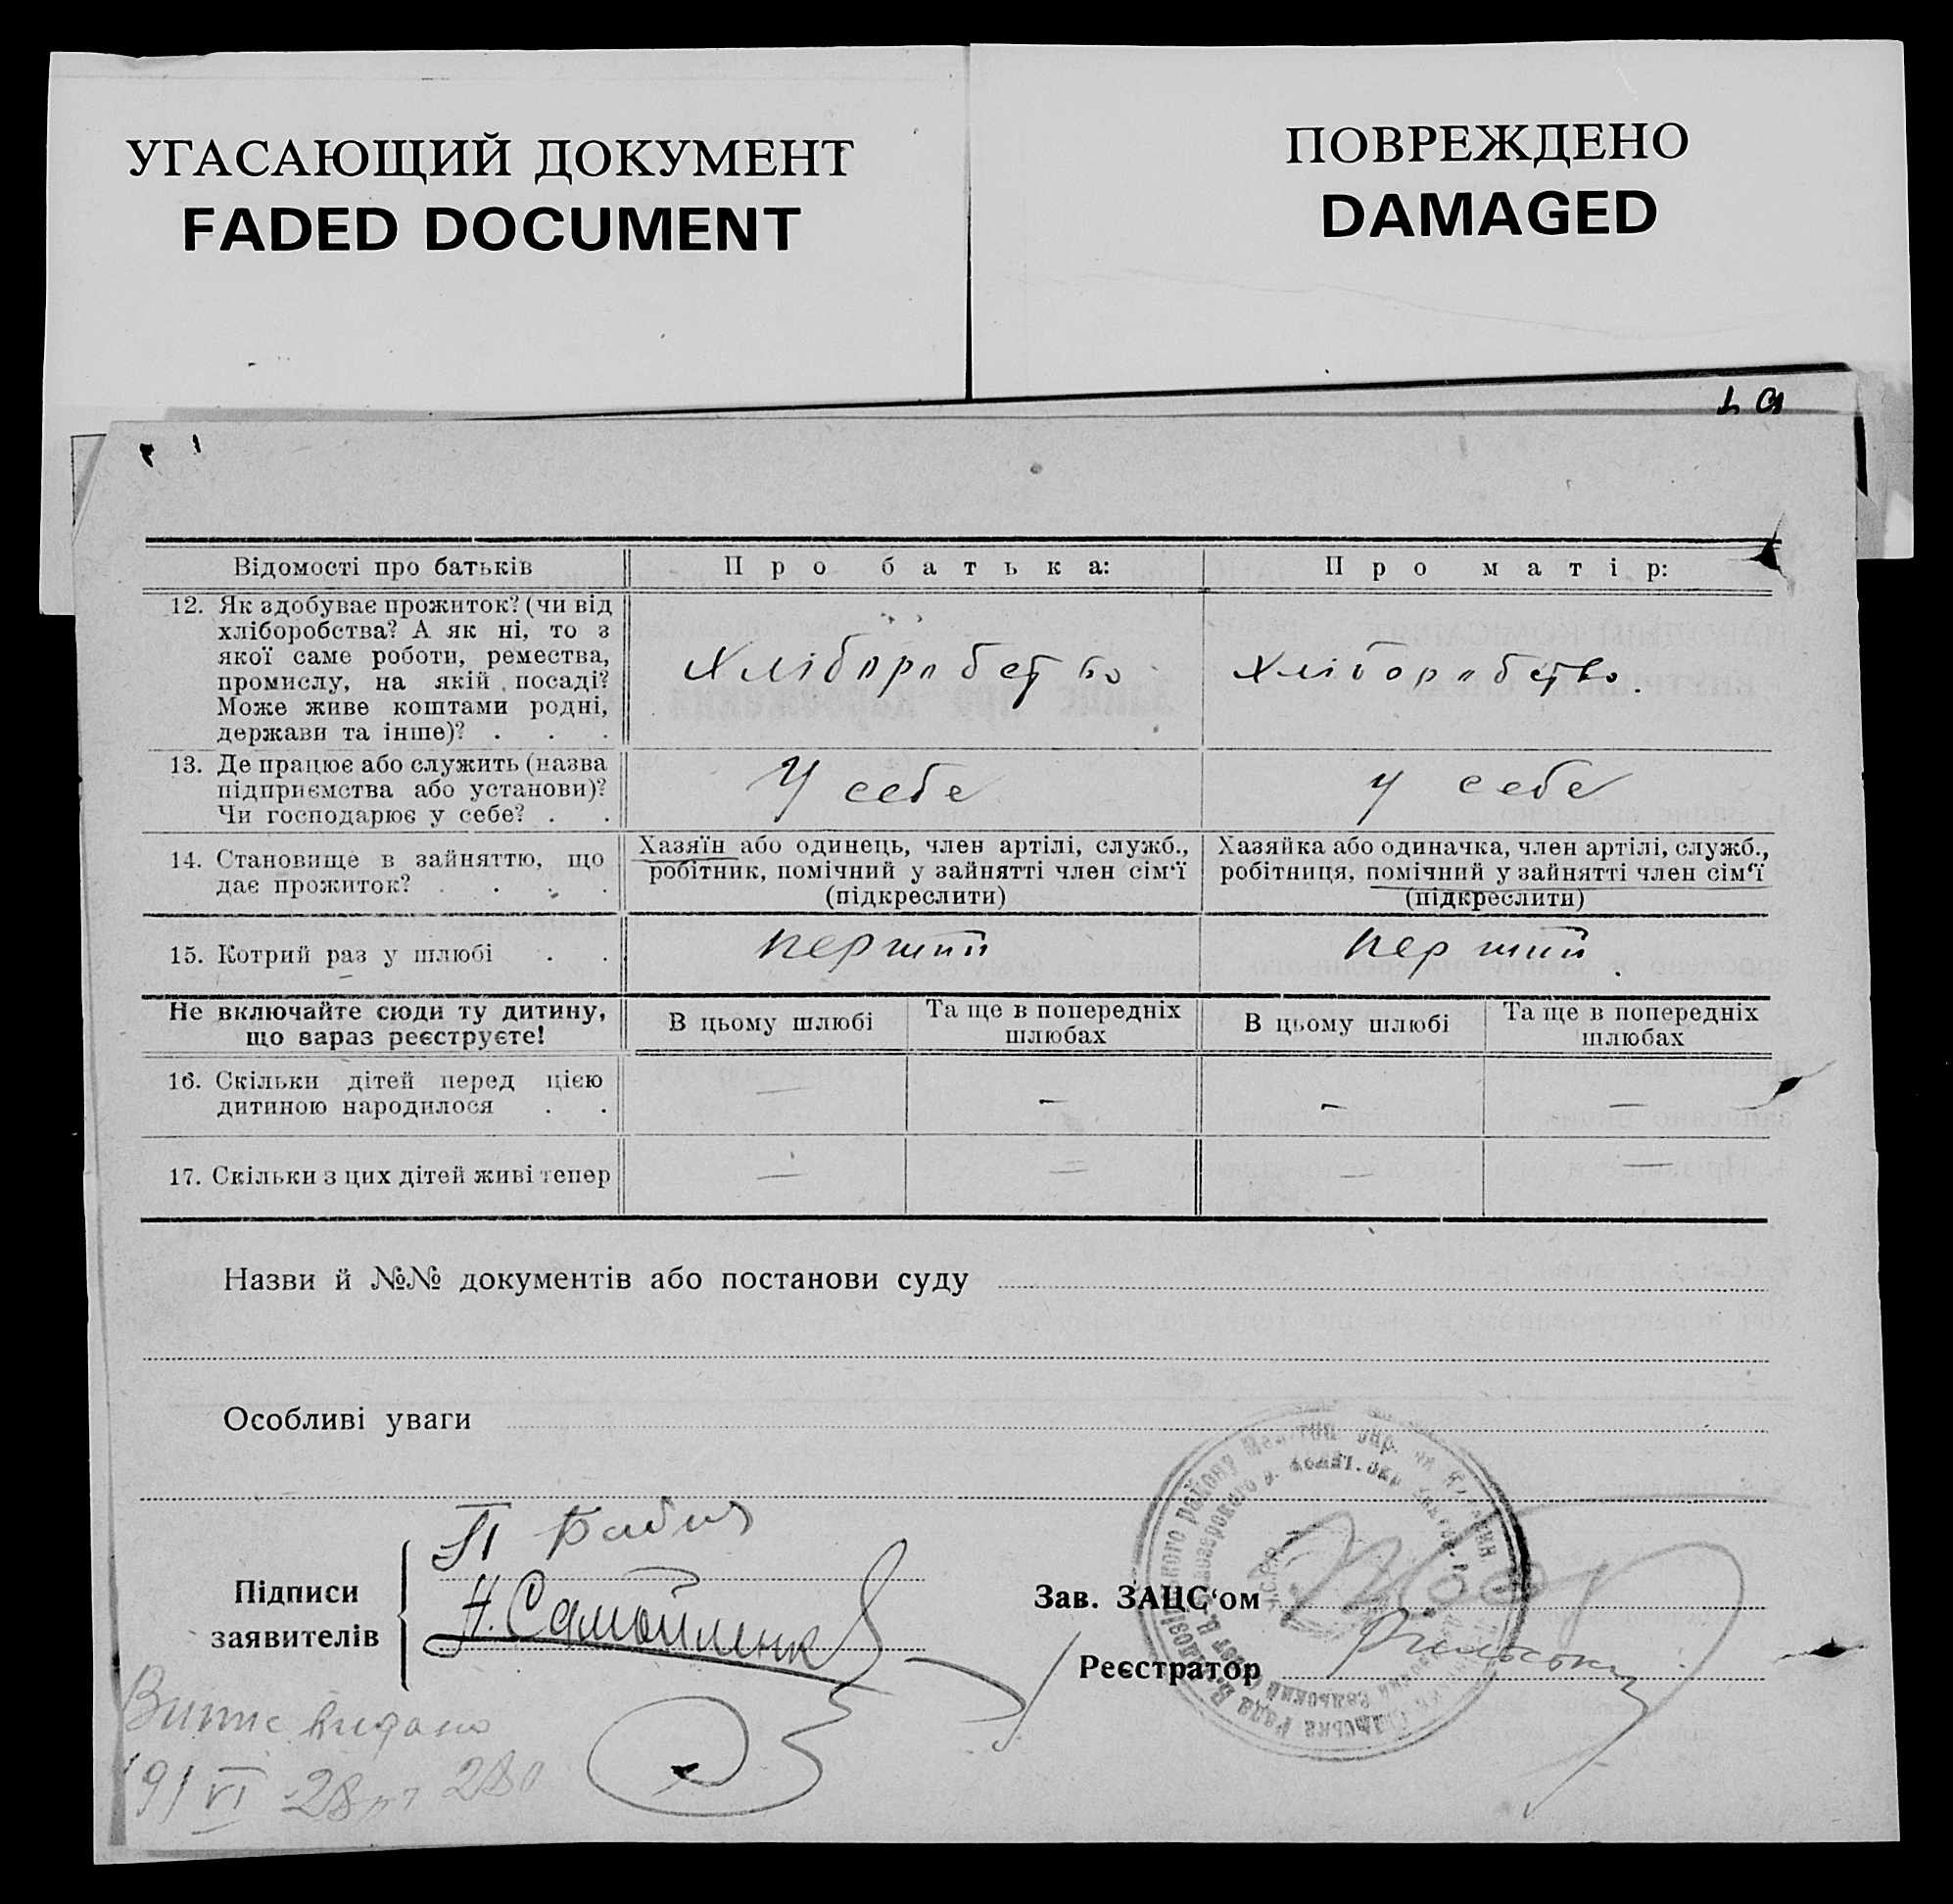 УГАСАЮЩИЙ ДОКУМЕНТ
FADED DOCUMENT
ПОВРЕЖДЕНО
DAMAGED
Відомості про батьків
Про батька:
Про матір:
12. Як здобуває прожиток? (чи від
хліборобства? А як ні, то з
якої саме роботи, ремества,
промислу, на якій посаді?
Може живе коштами родні,
держави та інше)? . . .
Хліборобство
Хліборобство.
13. Де працює або служить (назва
підприємства або установи)?
Чи господарює у себе? . .
У себе
у себе
14. Становище в зайняттю, що
дає прожиток? . . . .
Хазяїн або одинець, член артілі, служб.,
робітник, помічний у зайнятті член сім'ї
(підкреслити)
Хазяйка або одиначка, член артілі, служб.,
робітниця, помічний у зайнятті член сім'ї
(підкреслити)
15. Котрий раз у шлюбі . .
перший
перший
Не включайте сюди ту дитину,
що зараз реєструєте!
В цьому шлюбі
Та ще в попередніх
шлюбах
В цьому шлюбі
Та ще в попередніх
шлюбах
16. Скільки дітей перед цією
дитиною народилося . .
— — — —
17. Скільки з цих дітей живі тепер
— — — —
Назви й №№ документів або постанови суду
Особливі уваги
Підписи
заявителів
П
Н. Самойленко
Зав. ЗАЦС'ом
Реєстратор
Випис видано
19/VI 28